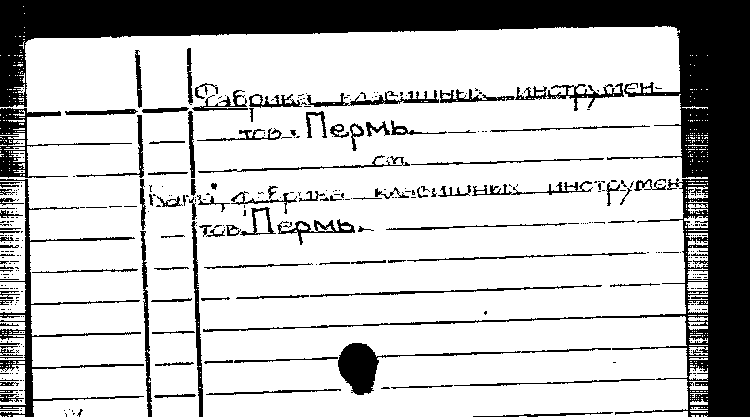 Фабрика клавишных инструмен-
тов. Пермь.
см.
"Кама", фабрика клавишных инструмен-
тов. Пермь.